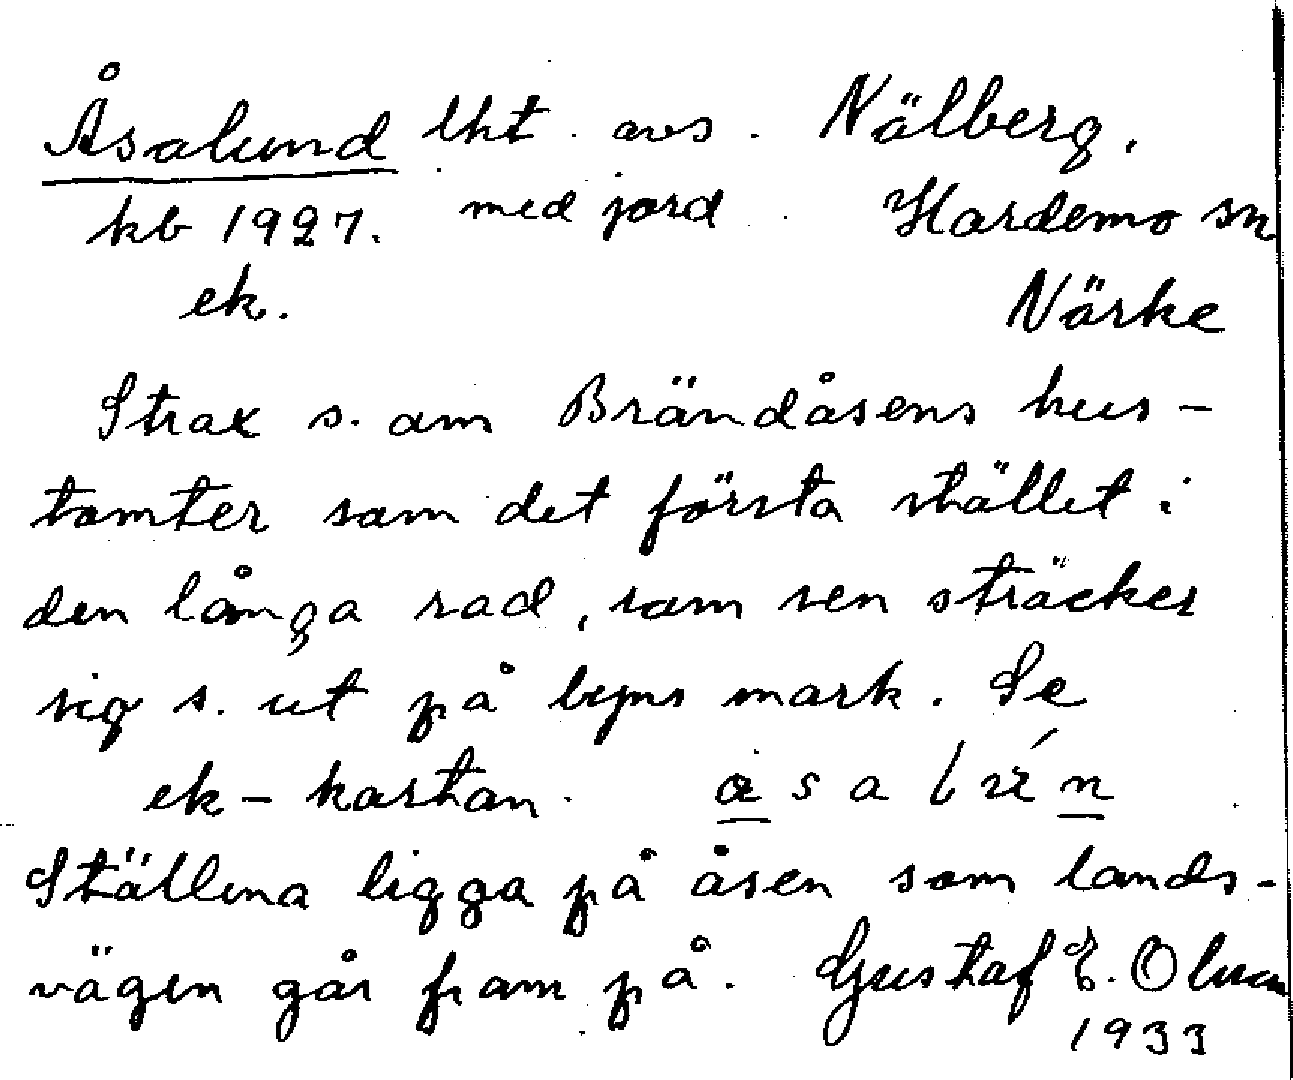 Åsalund lht. avs. Nälberg.
kb 1927. med jord Hardemo sn
ek. Närke
Strax s. om Brändåsens hus-
tomter som det första stället i
den långa rad, som sen sträcker
sig s. ut på byns mark. Se
ek-kartan.
Ställena ligga på åsen som lands-
vägen går fram på. Gustaf E. Olsson
1933